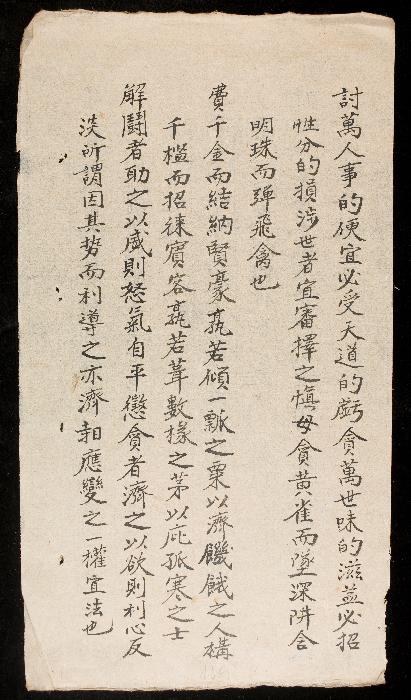 討萬人事的便宜必受天道的虧貪萬世味的滋益必招
性分的損涉世者宜審擇之慎毋貪黃雀而墜深阱舍
明珠而彈飛禽也
費千金而結納賢豪孰若傾一瓢之粟以濟饑餓之人構
千楹而招徠賓客孰若葺數椽之茅以庇孤寒之士
解鬪者助之以威則怒氣自平懲貪者濟之以欲則利心反
淡所謂因其势而利導之亦濟時應變之一權宜法也